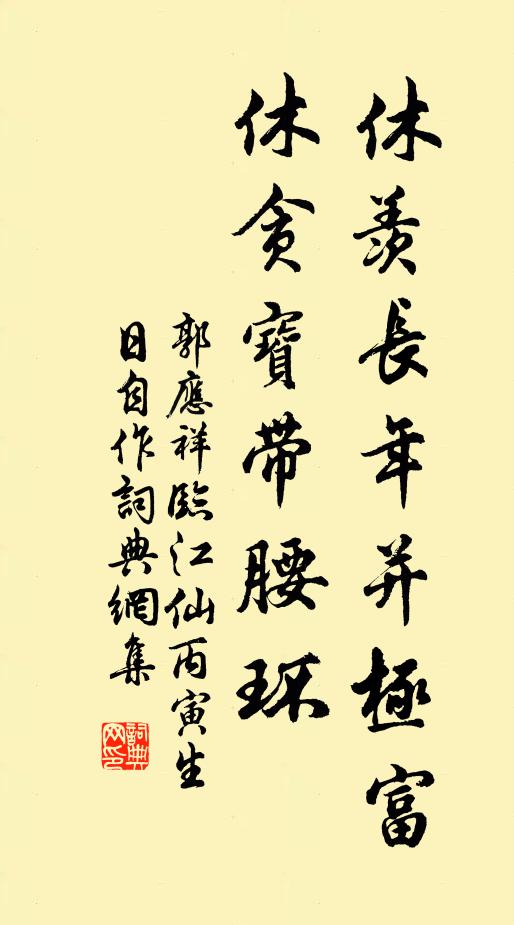 休羨長年并極富
休貪寶帶腰環
郭應祥臨江仙丙寅生
日自作詞典網集
詞典網印